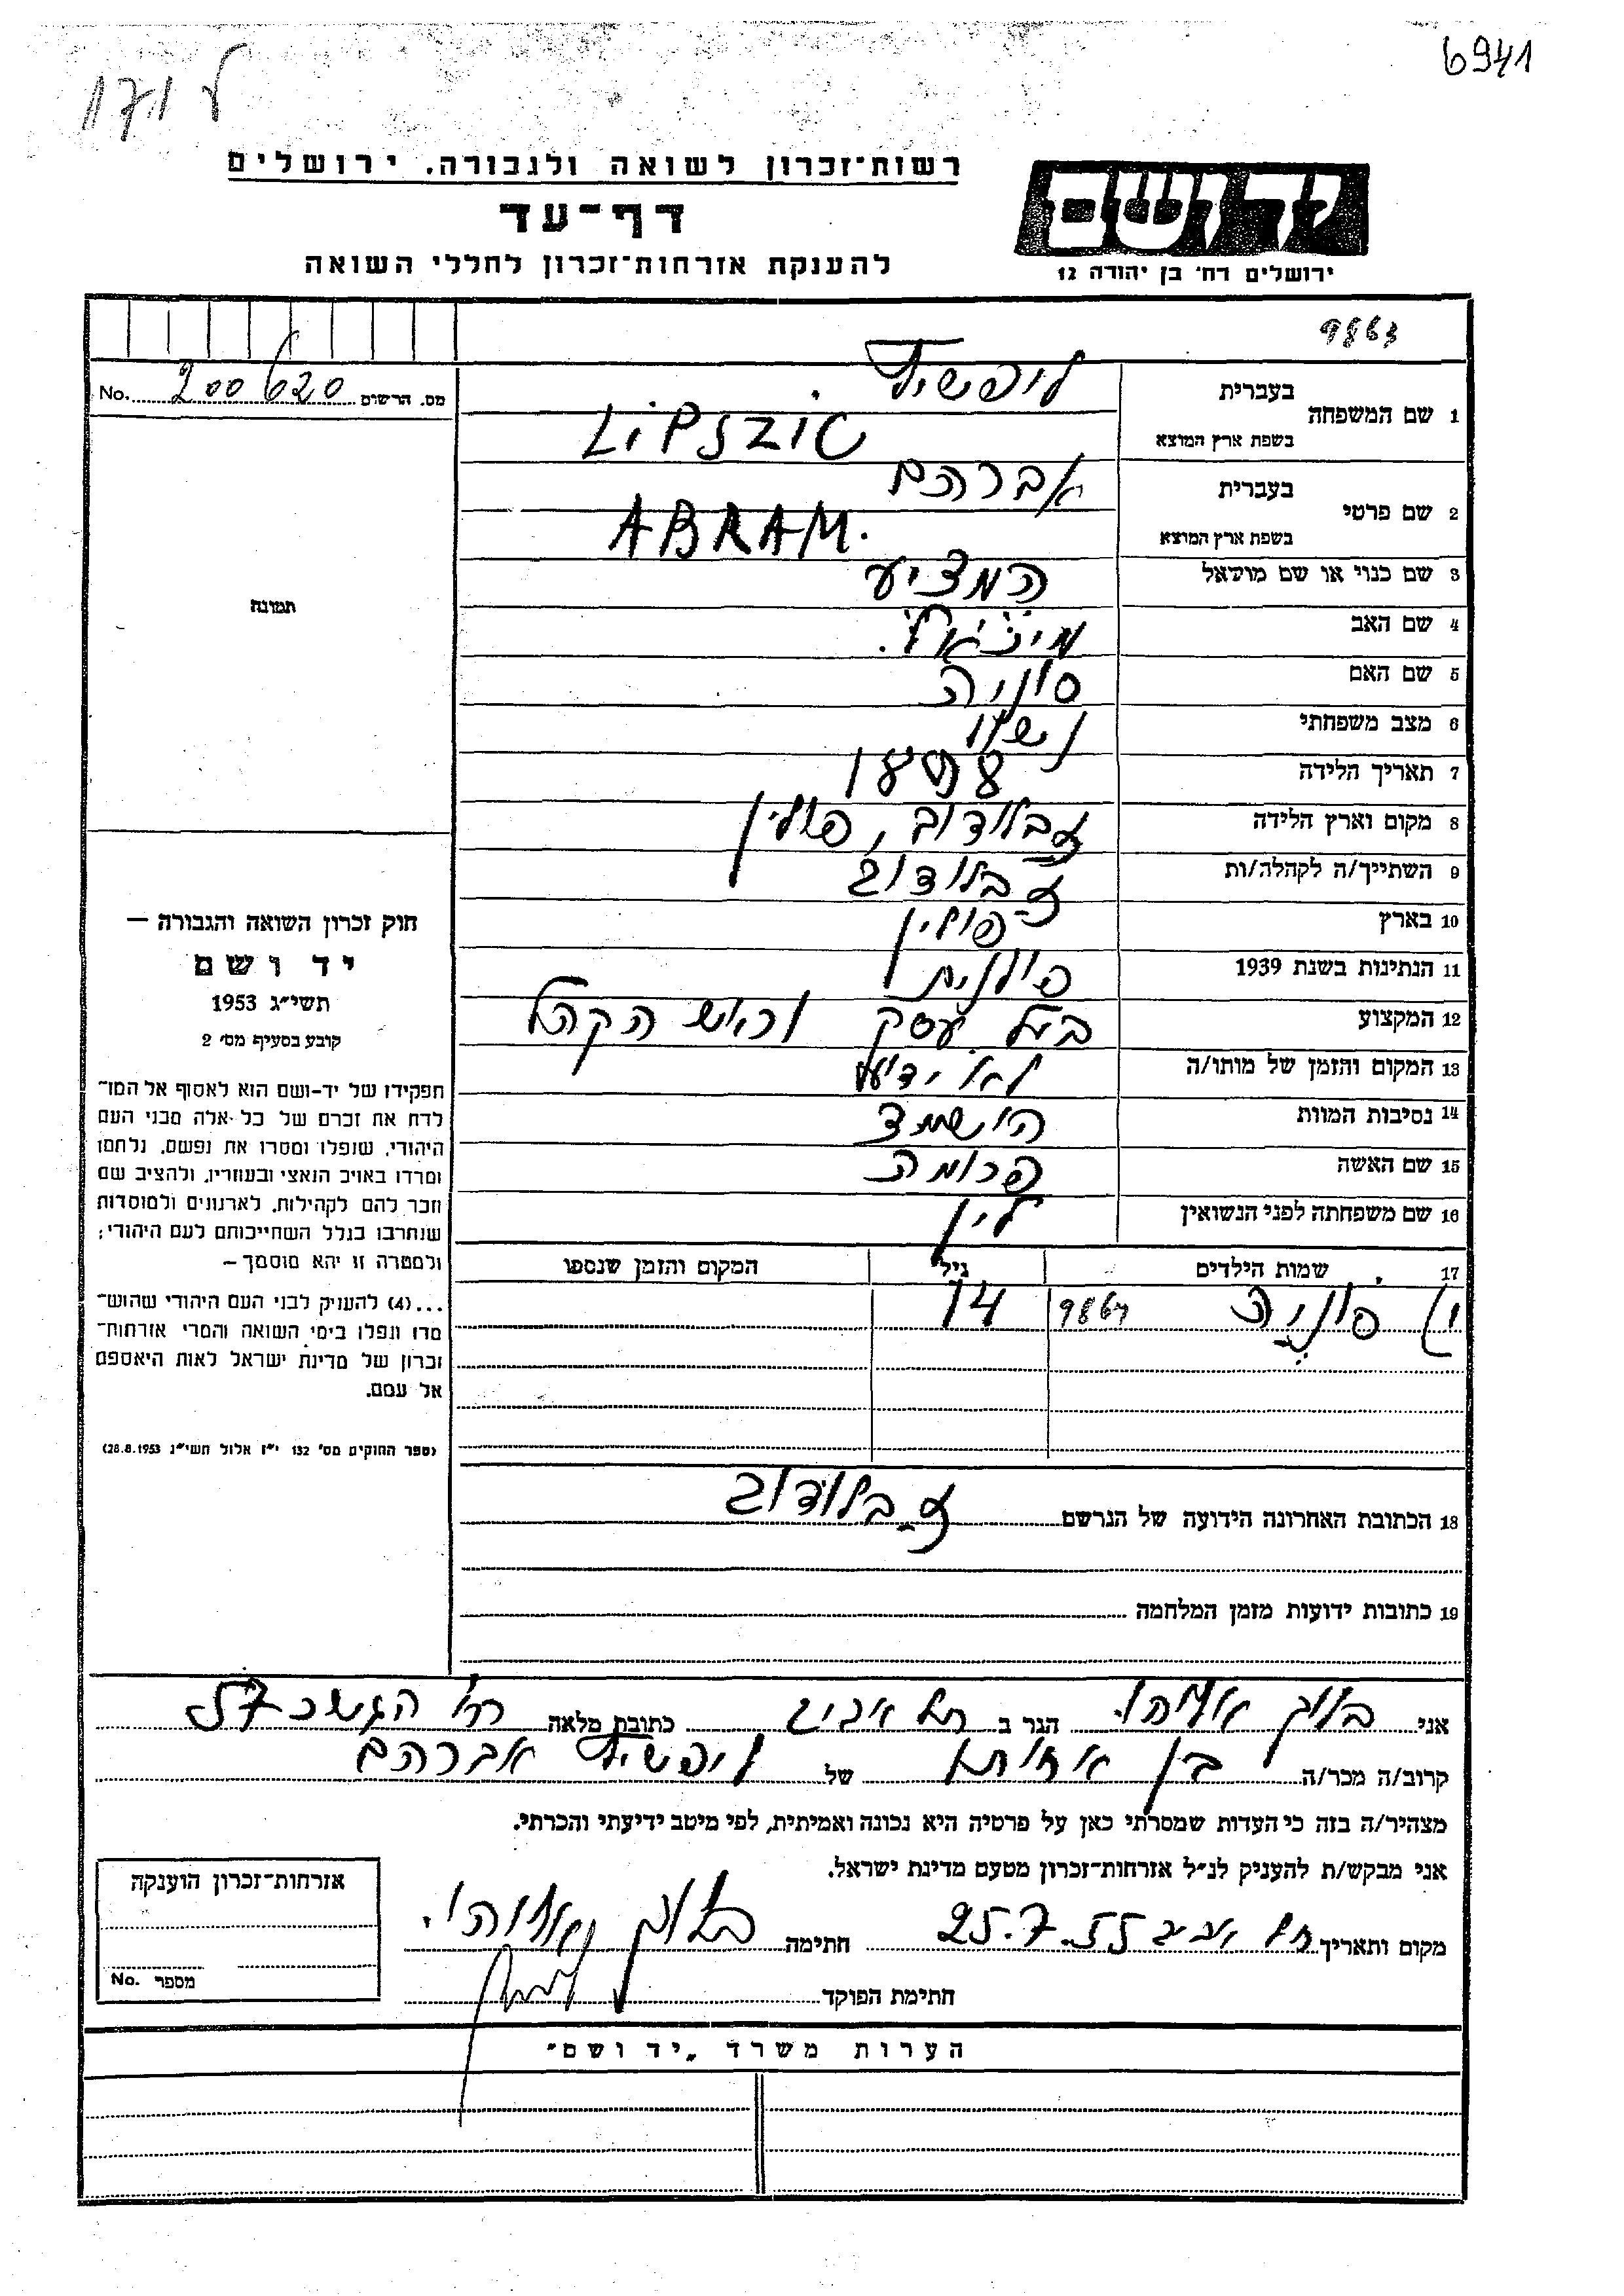 6941
רשות־זכרון לשואה ולגבורה, ירושלים
דף־עד
להענקת אזרחות־זכרון לחללי השואה
יד ושם
ירושלים רח׳ בן יהודה 12
9863
מס. הרשום 200620 No.
1 שם המשפחה
בעברית ליפשיץ
בשפת ארץ המוצא LIPSZIC
2 שם פרטי
בעברית אברהם
בשפת ארץ המוצא ABRAM.
3 שם כנוי או שם מושאל
4 שם האב
5 שם האם סוניה
6 מצב משפחתי נשוי
7 תאריך הלידה
8 מקום וארץ הלידה זבלודוב, פולין
9 השתייך/ה לקהלה/ות זבלודוב
10 בארץ פולין
11 הנתינות בשנת 1939 פולנית
12 המקצוע בעל עסק וראש הקהל
13 המקום והזמן של מותו/ה לא ידוע
14 נסיבות המוות הושמד
15 שם האשה פרומה
16 שם משפחתה לפני הנשואין לין
17 שמות הילדים גיל המקום והזמן שנספו
1) סוניה 14
18 הכתובת האחרונה הידועה של הנרשם זבלודוב
19 כתובות ידועות מזמן המלחמה
תמונה
חוק זכרון השואה והגבורה —
יד ושם
תשי״ג 1953
קובע בסעיף מס׳ 2
תפקידו של יד־ושם הוא לאסוף אל המו־
לדת את זכרם של כל אלה מבני העם
היהודי, שנפלו ומסרו את נפשם, נלחמו
ומרדו באויב הנאצי ובעוזריו, ולהציב שם
וזכר להם לקהילות, לארגונים ולמוסדות
שנחרבו בגלל השתייכותם לעם היהודי;
ולמטרה זו יהא מוסמך —
...(4) להעניק לבני העם היהודי שהוש־
מדו ונפלו בימי השואה והמרי אזרחות־
זכרון של מדינת ישראל לאות היאספם
אל עמם.
(ספר החוקים מס׳ 132 י״ז אלול תשי״ג 28.8.1953)
אני הגר ב תל אביב כתובת מלאה רח׳ הגשר 57
קרוב/ה מכר/ה בן אחותו של ליפשיץ אברהם
מצהיר/ה בזה כי העדות שמסרתי כאן על פרטיה היא נכונה ואמיתית, לפי מיטב ידיעתי והכרתי.
אני מבקש/ת להעניק לנ״ל אזרחות־זכרון מטעם מדינת ישראל.
מקום ותאריך תל אביב 25.7.55 חתימה
חתימת הפוקד
אזרחות־זכרון הוענקה
מספר No.
הערות משרד „יד ושם״